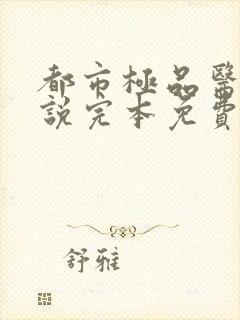 都市極品醫
説完本免費
舒雅